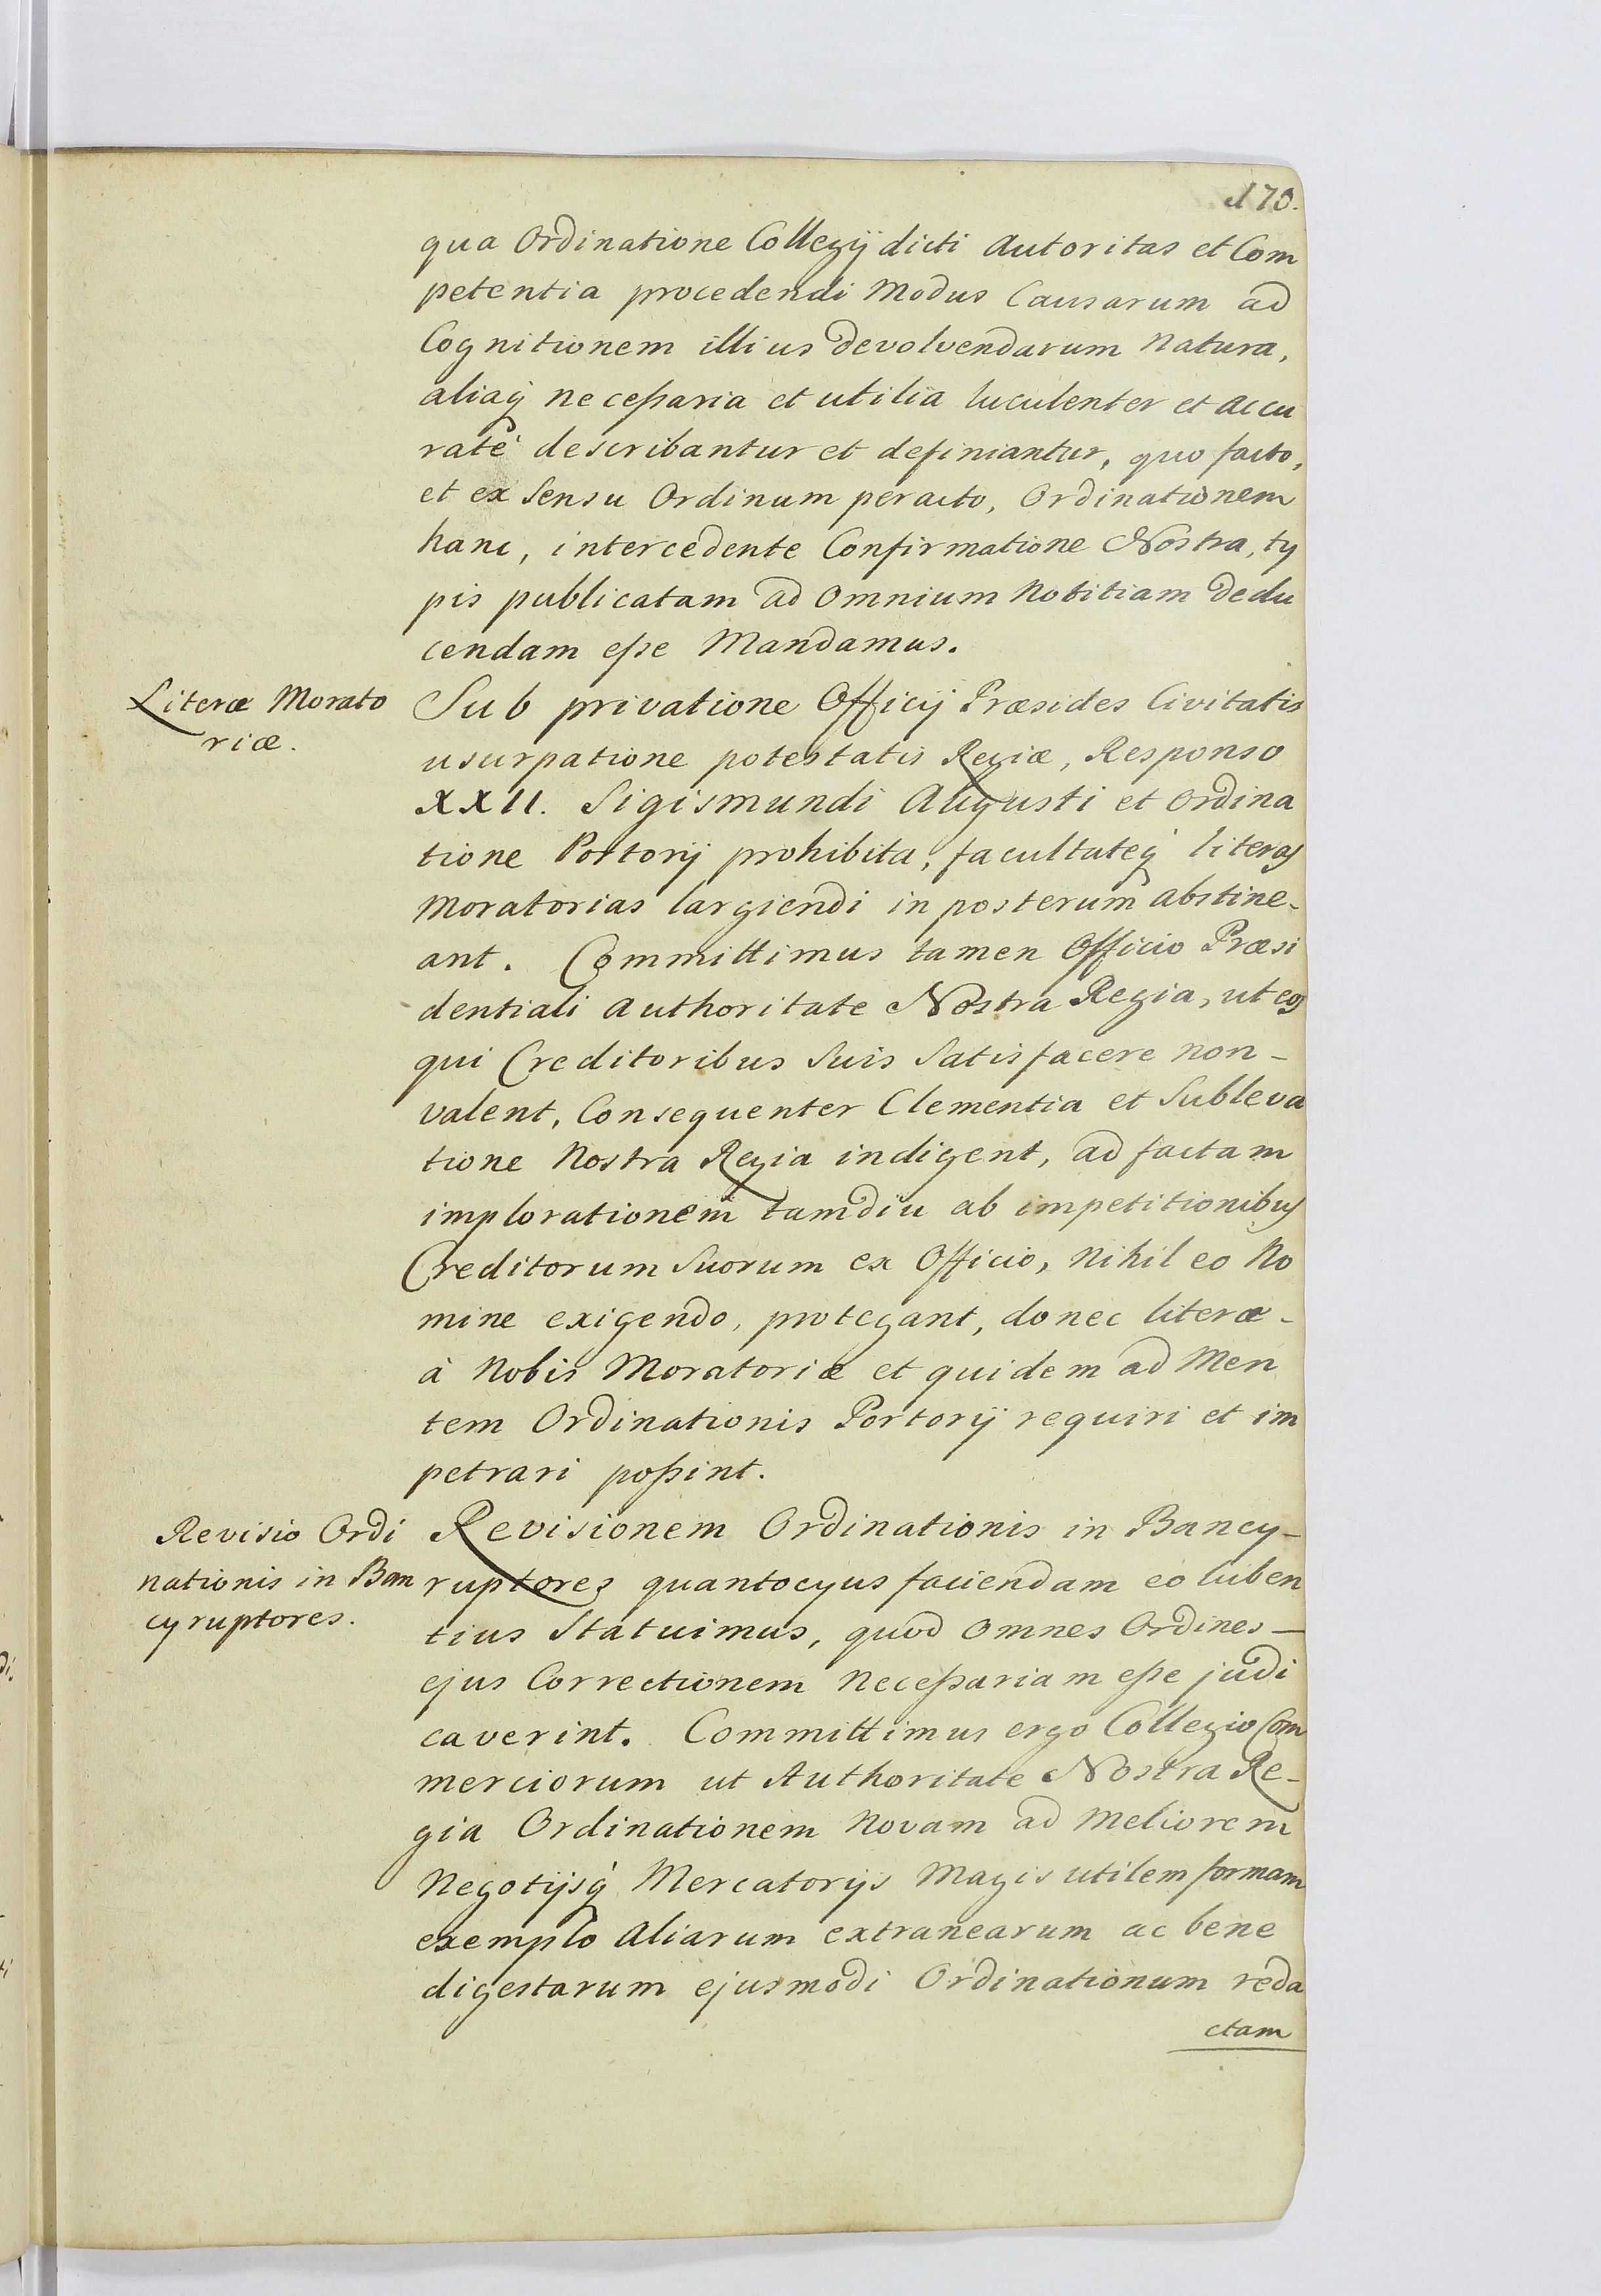 173.
qua Ordinatione Collegij dicti Autoritas et Com
petentia procedendi Modus Causarum ad
Cognitionem illius devolvendarum Natura,
aliaq̀ neceßaria et utilia luculenter et accu
ratè describantur et definiantur, quo facto,
et ex Sensu Ordinum peracto, Ordinationem
hanc, intercedente Confirmatione Nostra, ty
pis publicatam ad Omnium Notitiam dedu
cendam eße Mandamus.
Literæ Morato
riæ.
Sub privatione Officij Præsides Civitatis
usurpatione potestatis Regiæ, Responso
XXII. Sigismundi Augusti et Ordina
tione Portorij prohibita, facultateq̀ literas
Moratorias largiendi in posterum abstine-
ant. Committimus tamen Officio Præsi
dentiali Authoritate Nostra Regia, ut eos
qui Creditoribus Suis Satisfacere non-
valent, Consequenter Clementia et Subleva
tione Nostra Regia indigent, ad factam
implorationem tamdiu ab impetitionibus
Creditorum Suorum ex Officio, Nihil eo No
mine exigendo, protegant, donec literæ-
à Nobis Moratoriæ et quidem ad Men
tem Ordinationis Portorij requiri et im
petrari poßint.
Revisio Ordi
nationis in Ban
cyruptores.
Revisionem Ordinationis in Bancy-
ruptores quantocyus faciendam eo luben
tius Statuimus, quod Omnes Ordines-
ejus Correctionem Neceßariam eße judi
caverint. Committimus ergo Collegio Com
merciorum ut Authoritate Nostra Re-
gia Ordinationem Novam ad Meliorem
Negotijsq̀ Mercatorijs Magis utilem formam
exemplo Aliarum extranearum ac bene
digestarum ejusmodi Ordinationum reda
ctam